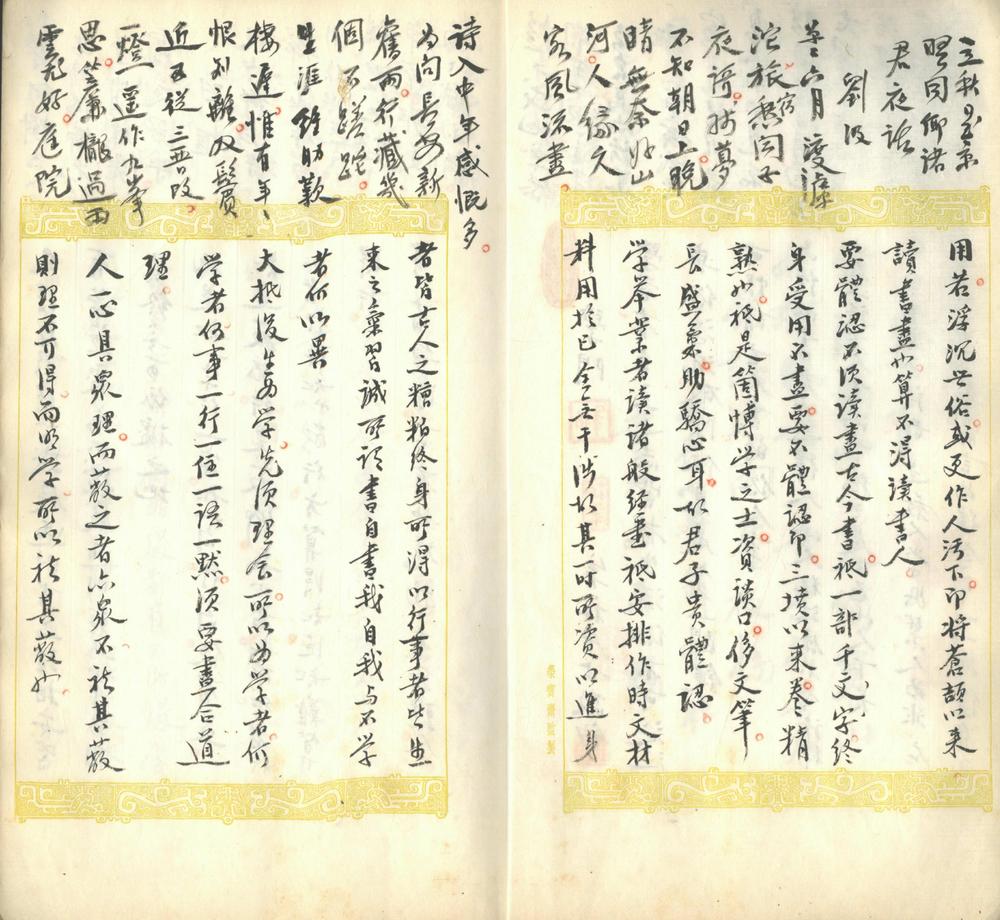 君夜話
劉汲
夜謌好夢
不知朝日上晚
晴無奈好山
河人緣久
客風流盡
用若浮沉世俗或更作人汚下即將蒼頡以來
讀書盡也算不得讀書人
要體認不須读盡古今書祗一部千文字終
身受用不盡要不體認即三墳以來卷卷精
熟也祗是箇博學之士資談口侈文筆
長盛氣助驕心耳故君子貴體認
學举業者读諸般經書祗安排作時文材
料用於己全無干涉故其一时所資以進身
榮寶齋監製
詩入中年感慨多
为向長安新
舊雨行藏幾
個不蹉跎
生涯肋歎
棲遲惟有年年
恨别離双鬢
近五從三五改
一燈遥作九峯
思簾櫳過雨
雲飛好庭院
者皆古人之糟粕終身所得以行事者皆生
來之氣習誠所謂書自書我自我与不學
者何以異
大抵後生为學先須理会所以为學者何
学者何事一行一住一語一默須要盡合道
理
人一心具眾理而蔽之者亦衆不祛其蔽
則理不可得而明學所以祛其蔽也